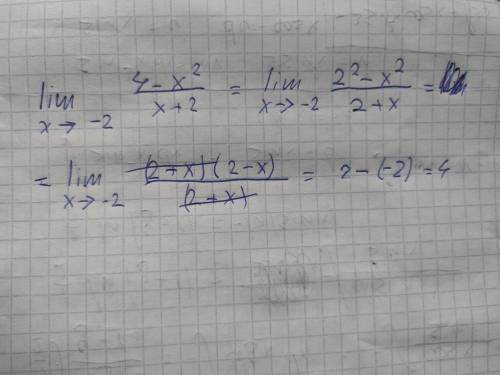 lim x→ -2 4 - x² / x + 2 = lim x→ -2 2² - x² / 2 + x =
= lim x→ -2 (2 + x)(2 - x) / (2 + x) = 2 - (-2) = 4